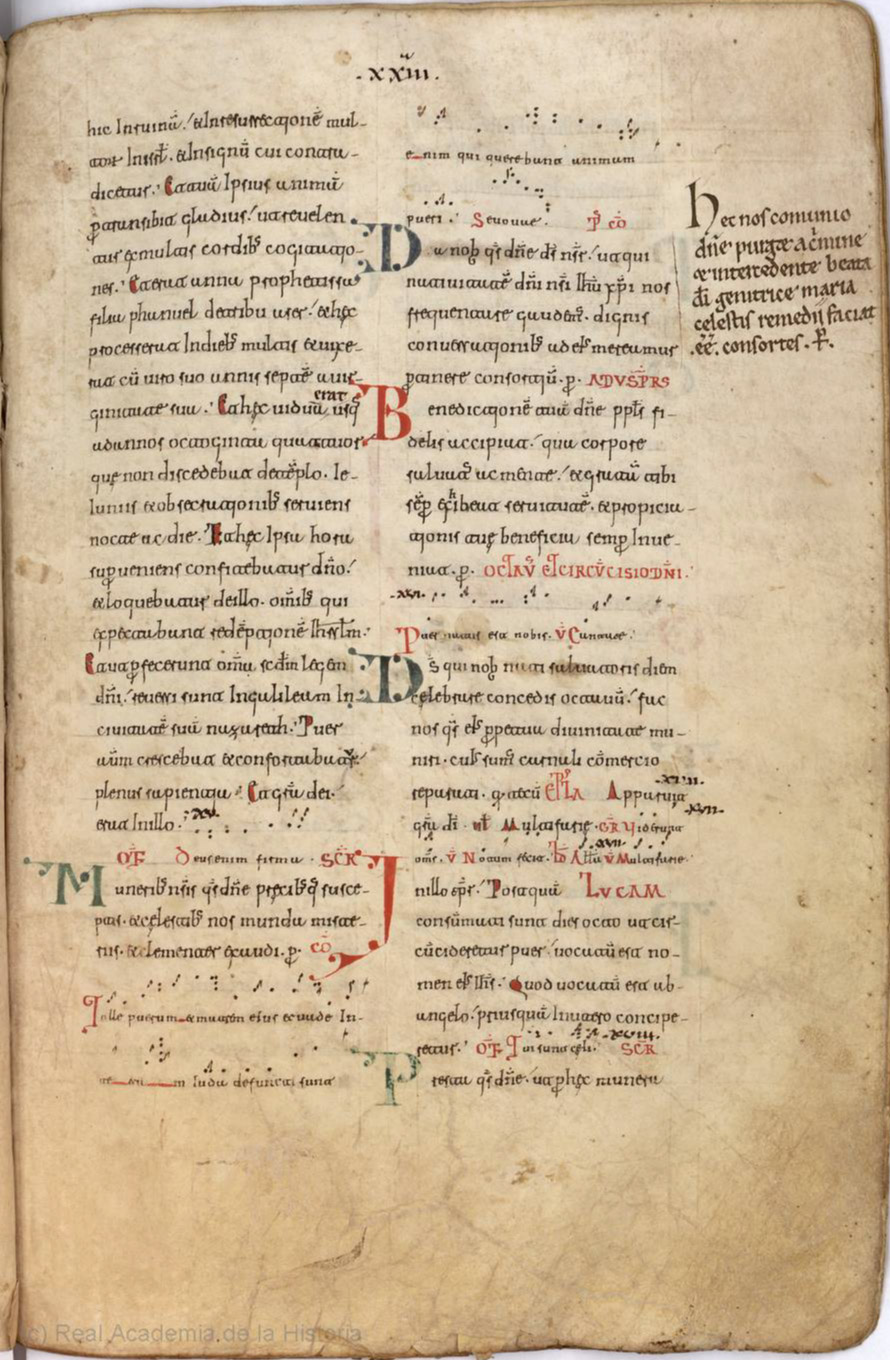 .xxiii.
hic In ruinā. & In resurrecționē mul-
tor̄ In isrł. & In signū cui contra-
dicetur. Et tuā Ipsius animā
ꝑtransibit gladius. ut revelen
tur ex multis cordibꝫ cogitatio-
nes. Et erat anna prophetissa
filia phanuel de tribu aser. & hęc
processerat In diebꝫ multis & vixe-
rat cū viro suo annis septē a vir-
ginitate sua. Et hęc viduā erat usq̄
ad annos octoginta quattuor
quę non discedebat de tēplo. Ie-
iuniis & obsecrationibꝫ serviens
nocte ac die. Et hęc Ipsa hora
supveniens confitebatur dn̄o.
& loquebatur de illo. om̄ibꝫ qui
expectabunt redēptionē ihrslm.
Et ut ꝑfecerunt om̄ia scdm legem
dn̄i. reversi sunt In galileam In
civitatē suā nazareth. Puer
autm crescebat & confortabatur
plenus sapientia. Et gra dei.
erat In illo. .xv.
OF Deus enim firma. SCR
Muneribꝫ nr̄is qs dn̄e precibꝫq̄ susce-
ptis. & celestibꝫ nos munda miste-
riis. & clementer exaudi. p. CO
Tolle puerum & matrem eius & vade In
terram Iuda defuncti sunt
enim qui querebant animam
pueri. Seuouae. P̄ cō
Da nobꝫ qs dn̄e ds nr̄. ut qui
nativitatē dn̄i nr̄i ihū xp̄i nos
frequentare gaudem̄. dignis
conversationibꝫ ad eīs mereamur
ꝑtinere consortiū. p. AD VSPRS
Benedictionē tuā dn̄e ppls fi-
delis accipiat. qua corpore
salvatꝰ ac mente. & gratū tibi
semp̄ exhibeat servitutē. & propicia-
tionis tuę beneficia semp̄ Inve-
niat. p. OCTAV ET CIRCVCISIO DN̄I.
.xvi.
Puer natus est nobis. V Cantate.
Ds qui nobꝫ nati salvatoris diem
celebrare concedis octavū. fac
nos qs eīs ꝑpetua divinitate mu-
niri. cuīs sumꝰ carnali cōmercio
reparati. q tecū EPLA Apparuit .xviii.
gra dī. ut Multifarie. GR Viderunt .xvii.
om̄s. V Notum fecit. Alla V Multifarie .xvii.
In illo tp̄r. Postquā LVCAM
consūmati sunt dies octo ut cir-
cūcideretur puer. vocatū est no-
men eīs ihs. Quod vocatū est ab
angelo. priusquā In utero concipe-
retur. OF Tui sunt celi. SCR .xviii.
Presta qs dn̄e. ut ꝑ hęc munera
Hec nos comunio
dn̄e purget a crimine
et intercedente beata
dī genitrice maria
celestis remedii faciat
.eē. consortes. P.
(c) Real Academia de la Historia